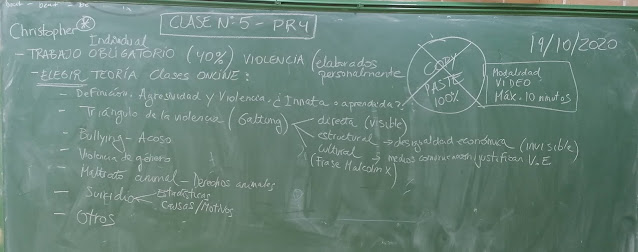 Christopher *
CLASE Nº: 5 - PR4
19/10/2020
Individual
- TRABAJO OBLIGATORIO (40%) VIOLENCIA (elaborados personalmente
COPY
PASTE
100%
Modalidad
VIDEO
Máx. 10 minutos
- ELEGIR TEORÍA Clases ONLINE:
- Definición. Agresividad y Violencia. ¿Innata o aprendida?
- Triángulo de la violencia (Galtung)
directa (visible)
estructural → desigualdad económica (invisible)
cultural → medios comunicación justifican V.E
(Frase Malcolm X)
- Bullying - Acoso
- Violencia de género
- Maltrato animal - Derechos animales
- Suicidio
Estadísticas
Causas/Motivos
- Otros